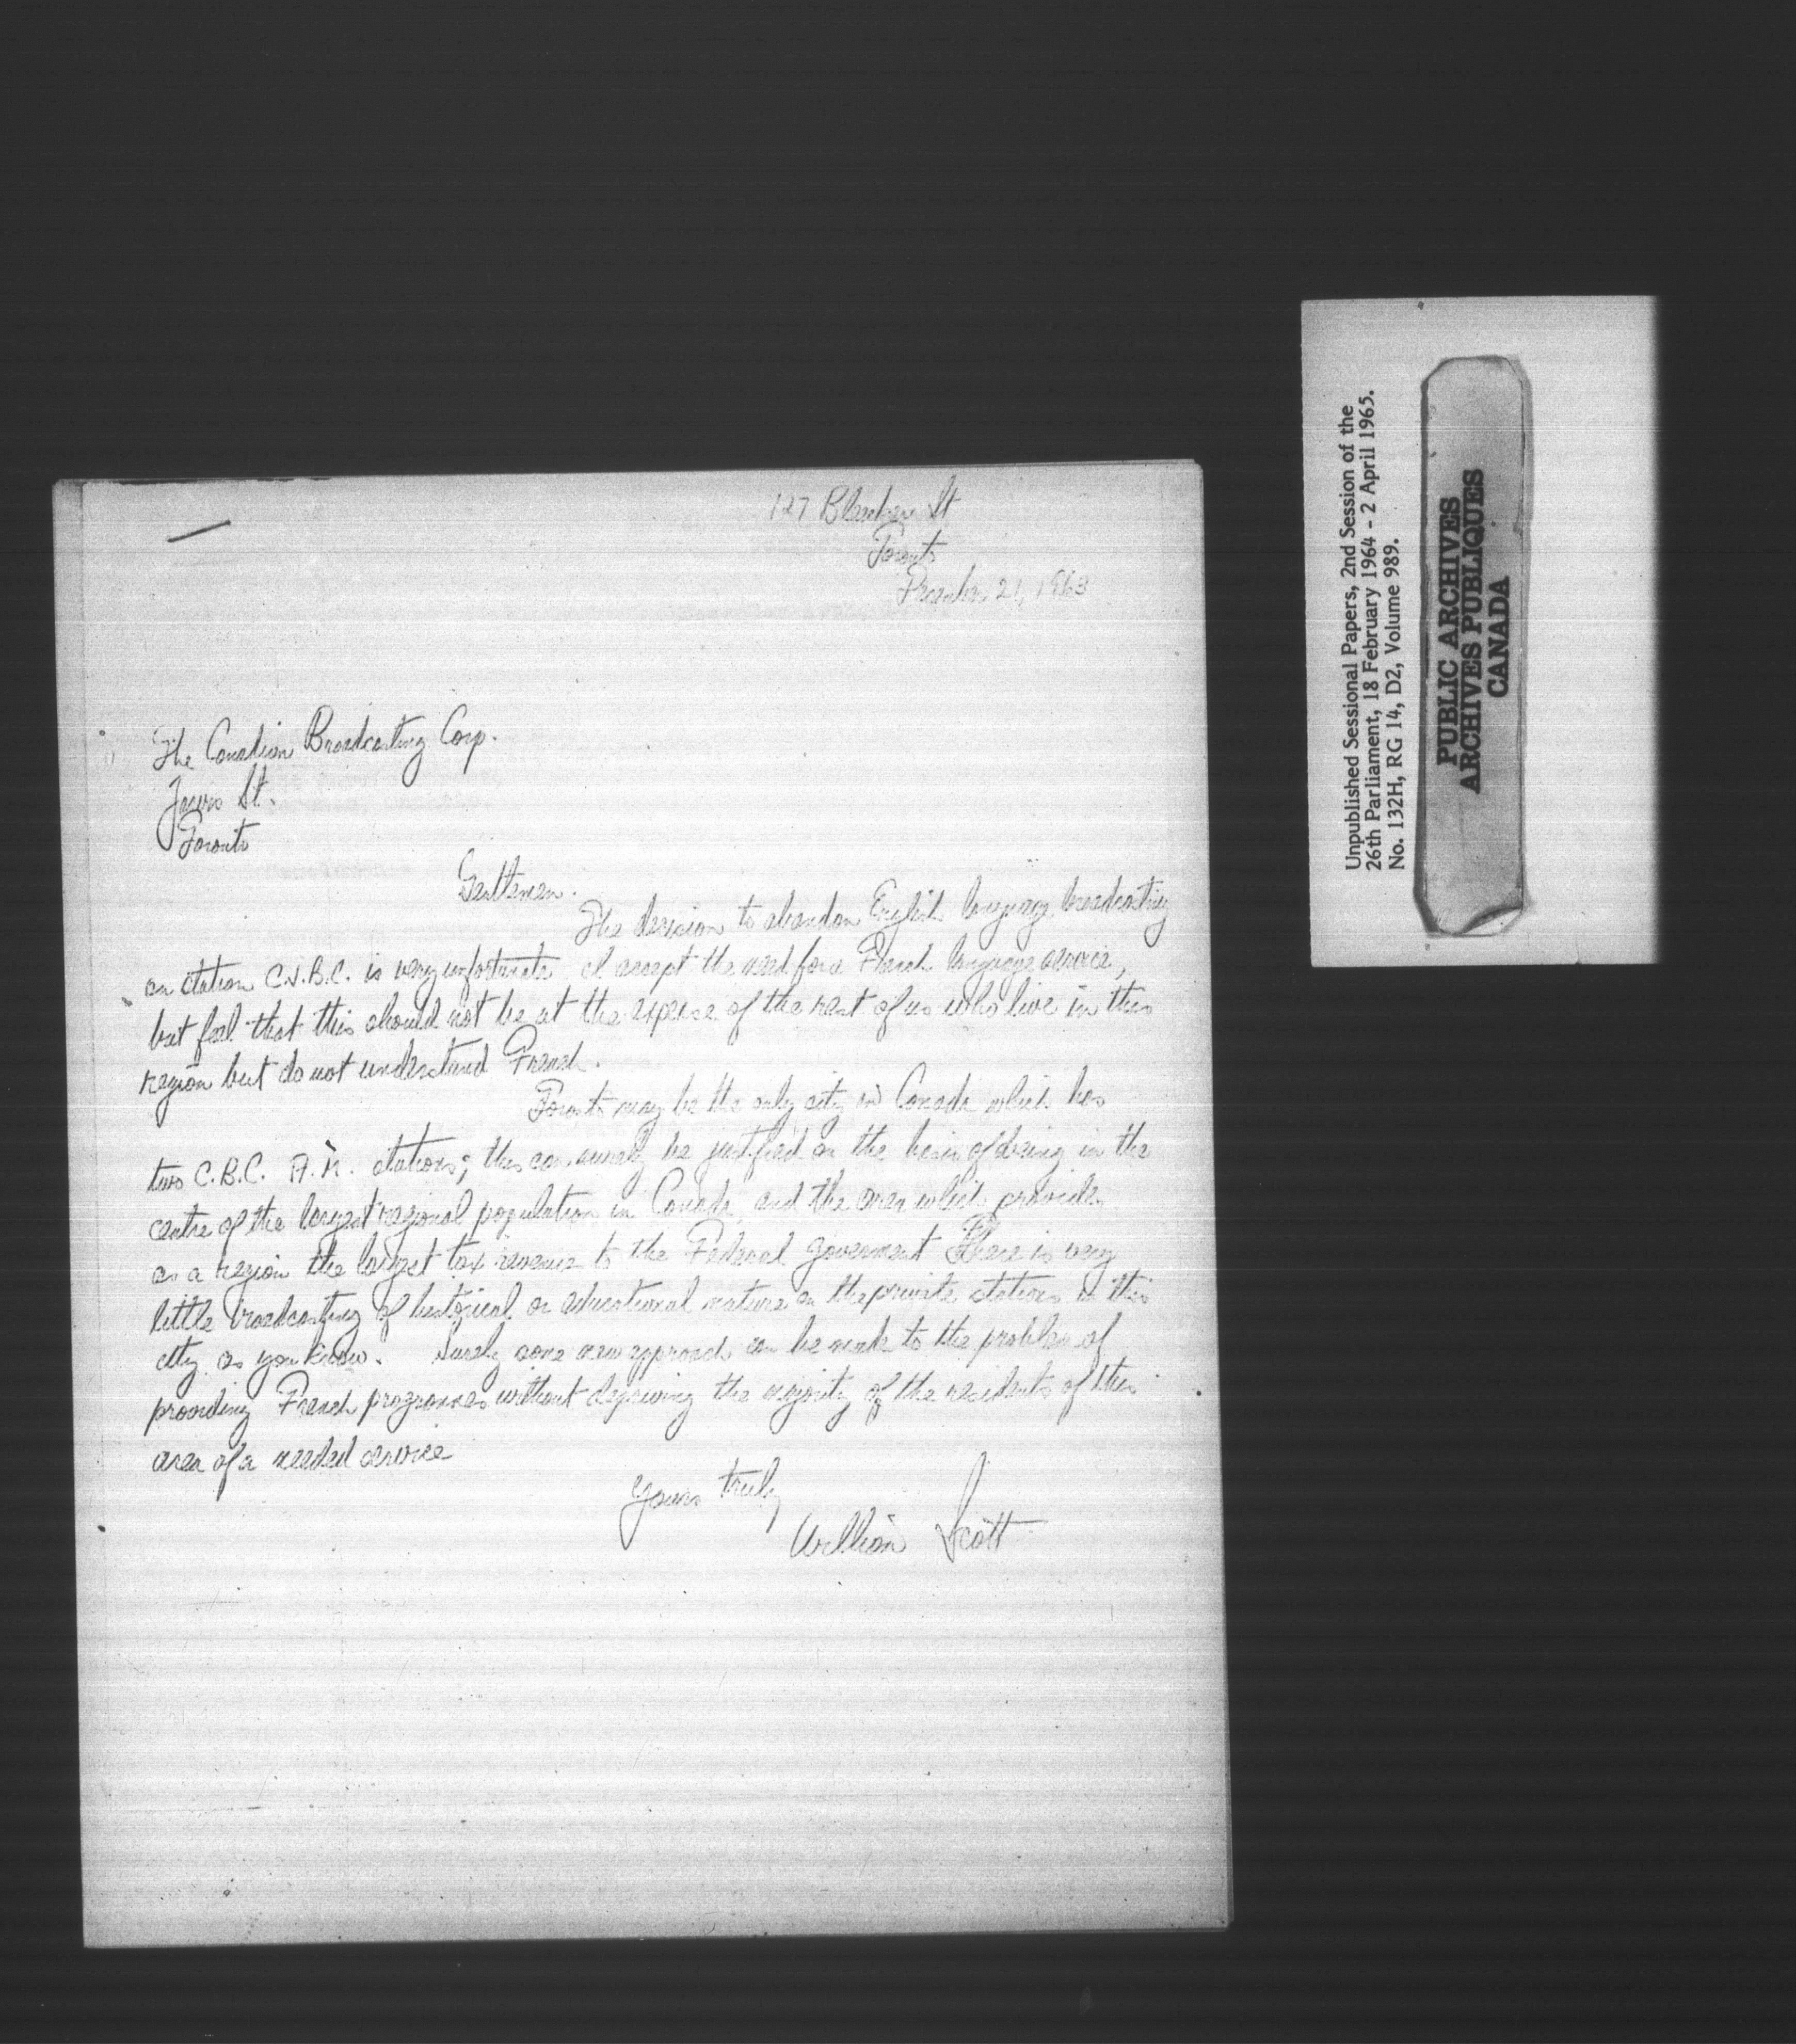 127 St
Toronto
December 21, 1963
The Canadian Broadcasting Corp.
Jarvis St.
Toronto
Gentlemen.
The decision to abandon English language broadcasting
on station C.J.B.C. is very unfortunate I accept the need for a French language service,
but feel that this should not be at the expense of the rest of us who live in this
region but do not understand French.
Toronto may be the only city in Canada which has
two C.B.C. A.M. stations; this can surely be justified on the basis of being in the
centre of the largest regional population in Canada, and the area which provides
as a region the largest tax revenue to the Federal goverment There is very
little broadcasting of historical or educational nature on the private stations in this
city as you know. Surely some new approach can be made to the problem of
providing French programmes without depriving the majority of the residents of this
area of a needed service
Yours truly
William Scott
Unpublished Sessional Papers, 2nd Session of the
26th Parliament, 18 February 1964 - 2 April 1965.
No. 132H, RG 14, D2, Volume 989.
PUBLIC ARCHIVES
ARCHIVES PUBLIQUES
CANADA